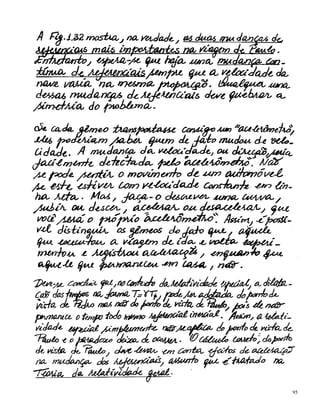 A Fig. 1.32 mostra, na verdade, as duas mudanças de
referenciais mais importantes na viagem de Paulo.
Entretanto, espera-se que haja uma mudança con-
tínua de referenciais sempre que a velocidade da
nave varia na mesma proporção. Qualquer uma
dessas mudanças de referenciais deve quebrar a
simetria do problema.
Se cada gêmeo transportasse consigo um "acelerômetro",
eles poderiam saber quem de fato mudou de velo-
cidade. A mudança da velocidade, ou direção, seria
facilmente detectada pelo acelerômetro. Não
se pode sentir o movimento de um automóvel
se este estiver com velocidade constante em li-
nha reta. Mas, faça-o descrever uma curva,
subir ou descer, acelerar ou desacelerar, que
você será o próprio acelerômetro. Assim, é possí-
vel distinguir os gêmeos do fato que, aquele
que executou a viagem de ida e volta experi-
mentou e registrou acelerações, enquanto que
aquele que permaneceu em casa, não.
Deve-se concluir que, no contexto da relatividade especial, a dilata-
ção dos tempos na forma T = γT₀, pode ser adotada do ponto de
vista de Pedro mas não do ponto de vista de Paulo, pois ele não
permanece o tempo todo no mesmo referencial inercial. Assim, a relati-
vidade especial simplesmente não se aplica do ponto de vista de
Paulo e o paradoxo deixa de ocorrer. O cálculo correto, do ponto
de vista de Paulo, deve levar em conta efeitos de aceleração
na mudança dos referenciais, assunto que é tratado na
Teoria da Relatividade Geral.
95